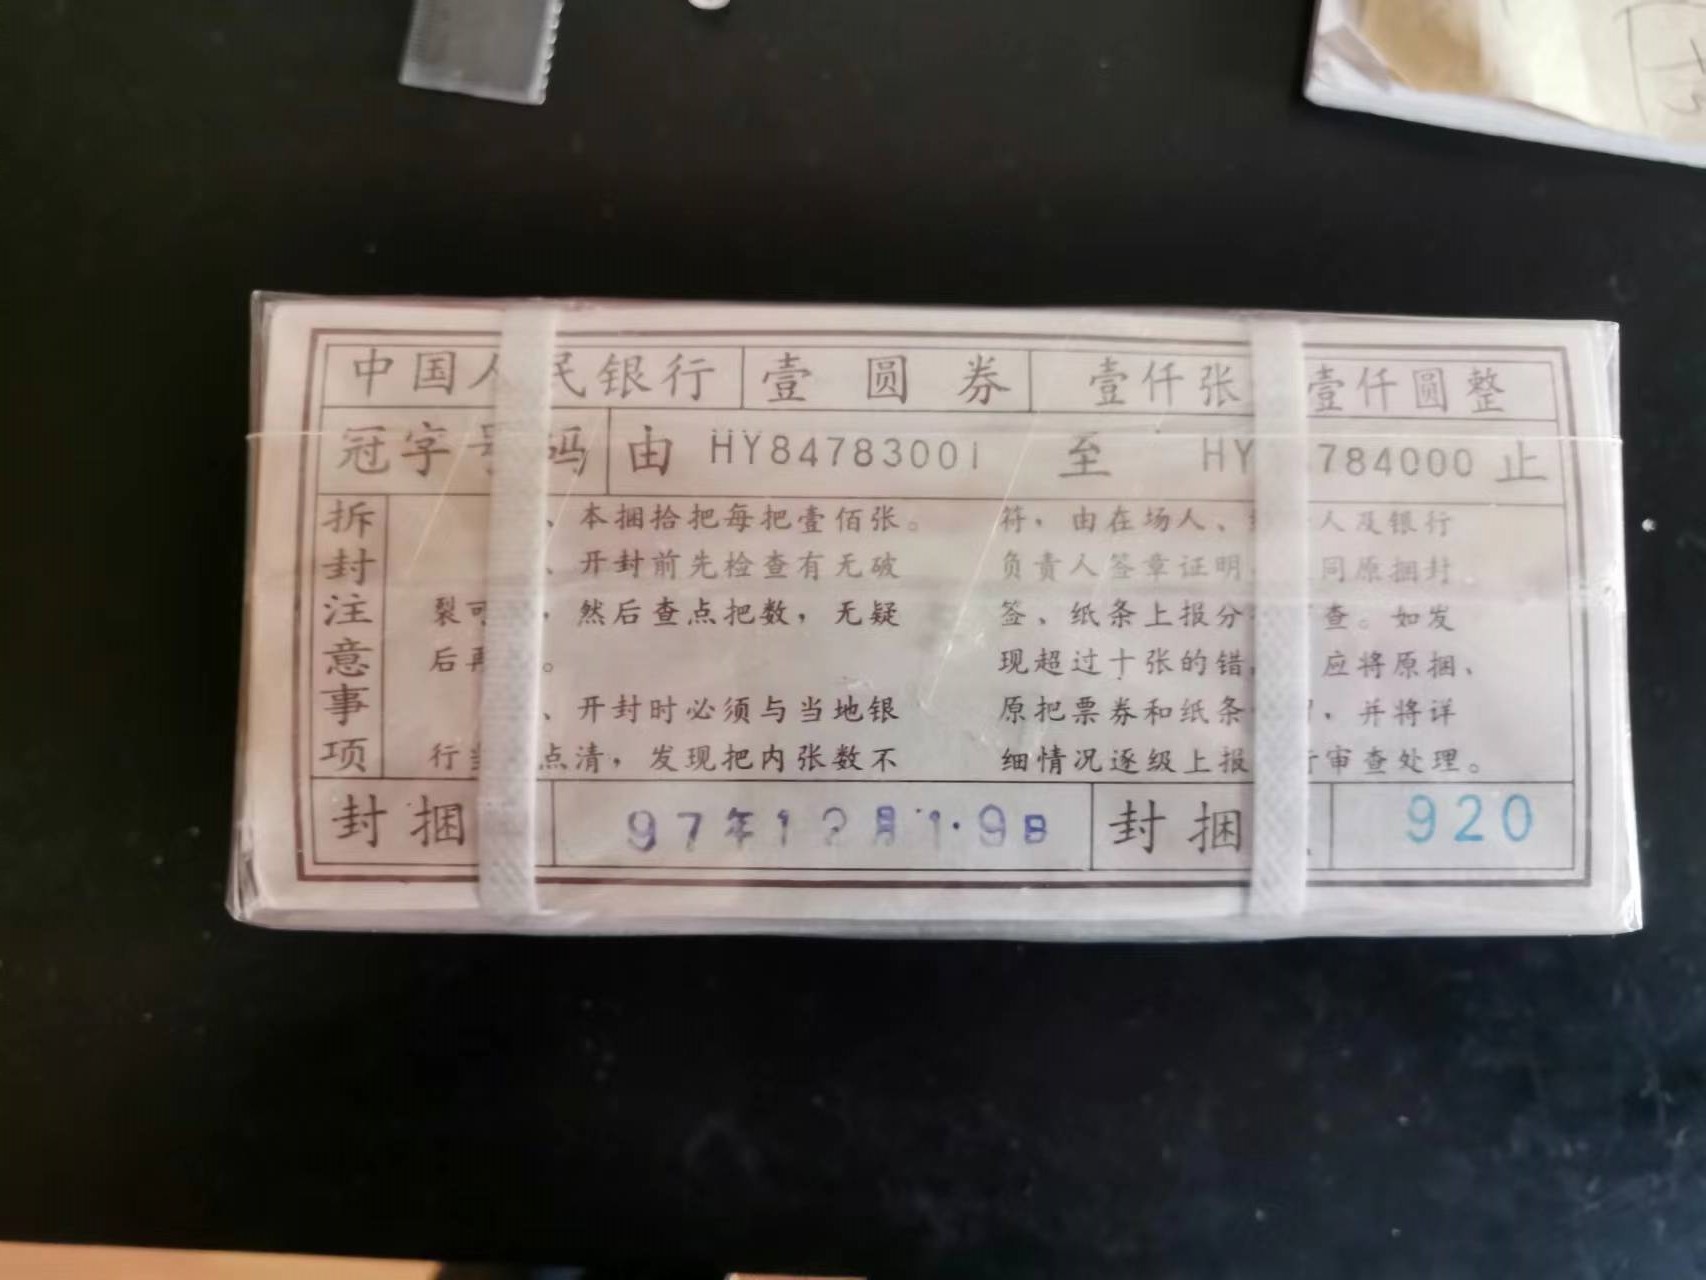 中国人民银行 壹圆券 壹仟张 壹仟圆整
冠字号码 由 HY84783001 至 HY 784000 止
拆封注意事项
、本捆拾把每把壹佰张。
、开封前先检查有无破
裂可 ，然后查点把数，无疑
后再 。
、开封时必须与当地银
行 点清，发现把内张数不
符，由在场人、 人及银行
负责人签章证明 同原捆封
签、纸条上报分 查。如发
现超过十张的错 应将原捆、
原把票券和纸条 ，并将详
细情况逐级上报 行审查处理。
封捆 97年12月19日 封捆 920